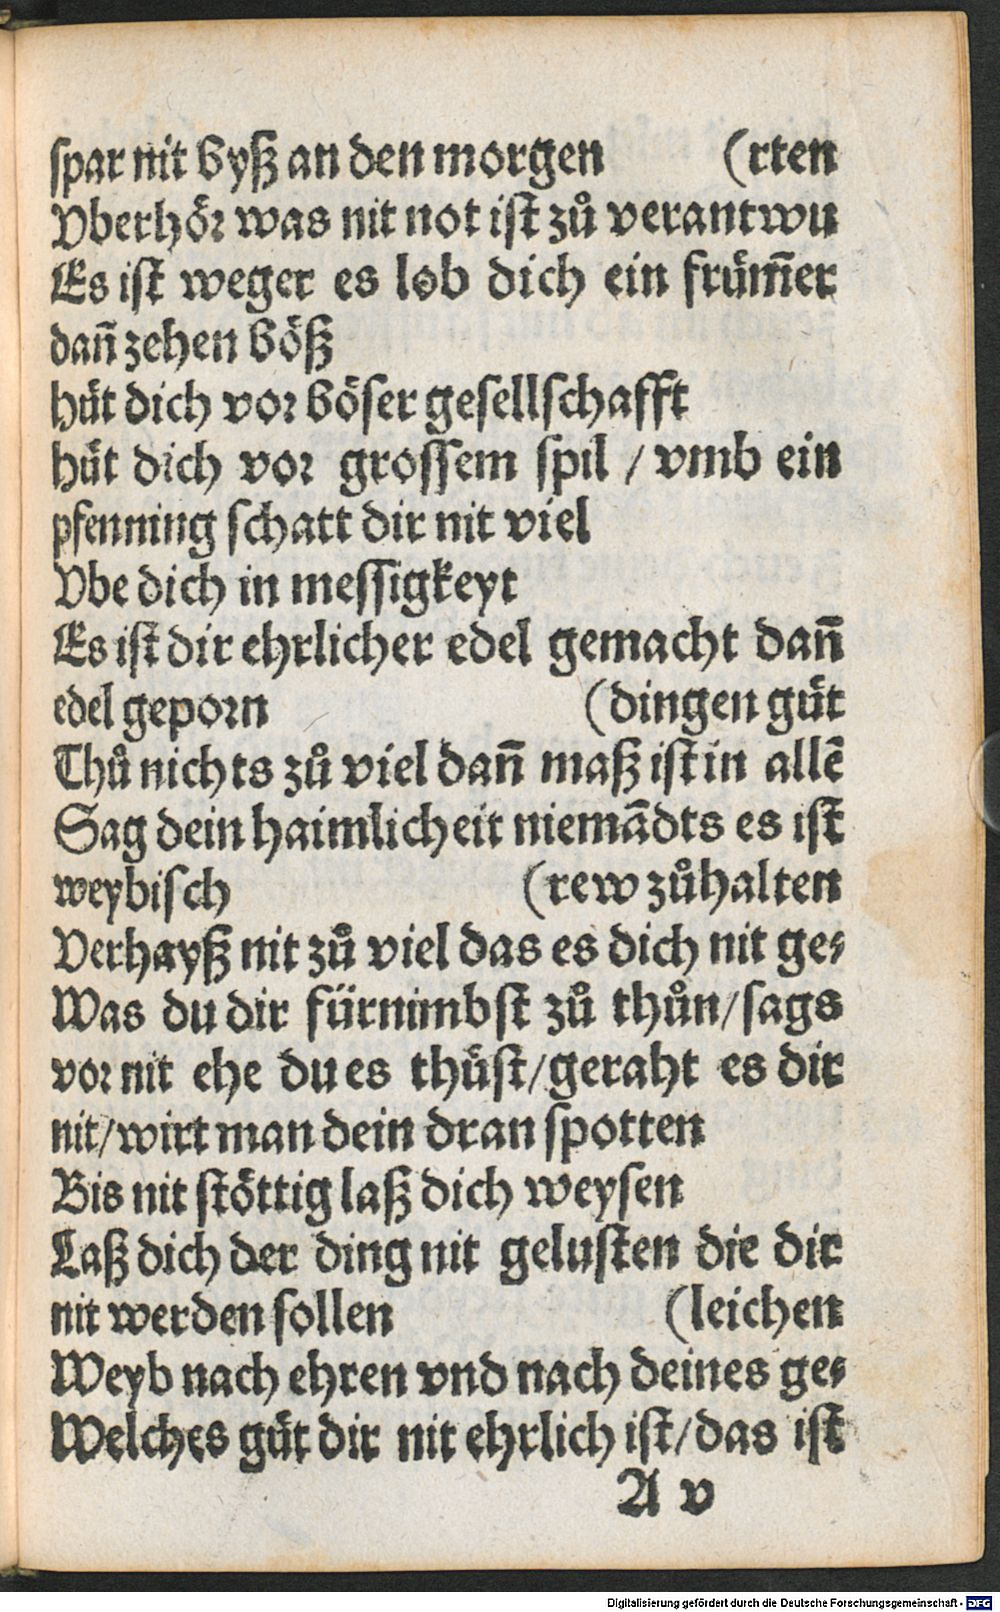 spar nit byß an den morgen (rten
Vberhör was nit not ist zů verantwu
Es ist weger es lob dich ein frům̃er
dañ zehen böß
hůt dich vor böser gesellschafft
hůt dich vor grossem spil / vmb ein
pfenning schatt dir nit viel
Vbe dich in messigkeyt
Es ist dir ehrlicher edel gemacht dañ
edel geporn (dingen gůt
Thů nichts zů viel dañ maß ist in allē
Sag dein haimlicheit niemādts es ist
weybisch (rew zůhalten
Verhayß nit zů viel das es dich nit ge-
Was du dir fürnimbst zů thůn/sags
vor nit ehe du es thůst/geraht es dir
nit/wirt man dein dran spotten
Bis nit stöttig laß dich weysen
Laß dich der ding nit gelusten die dir
nit werden sollen (leichen
Weyb nach ehren vnd nach deines ge-
Welches gůt dir nit ehrlich ist/das ist
A v
Digitalisierung gefördert durch die Deutsche Forschungsgemeinschaft - DFG